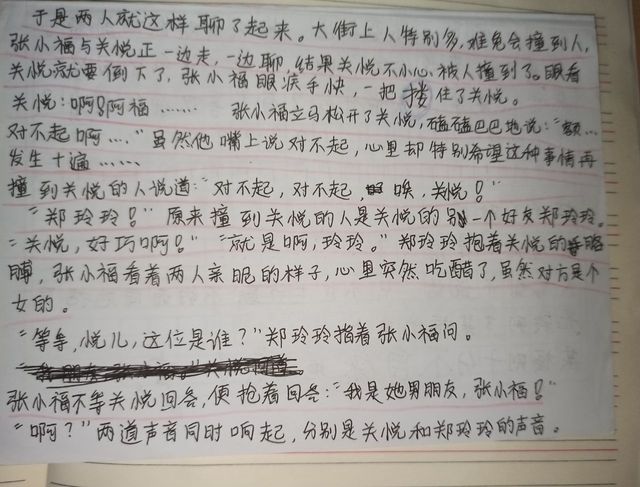 于是两人就这样聊了起来。大街上人特别多，难免会撞到人，
张小福与关悦正一边走，一边聊，结果关悦不小心被人撞到了。眼看
关悦就要倒下了，张小福眼疾手快，一把搂住了关悦。
关悦：啊！阿福…… 张小福立马松开了关悦，磕磕巴巴地说：“额…
对不起啊…”虽然他嘴上说对不起，心里却特别希望这种事情再
发生十遍……
撞到关悦的人说道：“对不起，对不起，唉，关悦！”
“郑玲玲！”原来撞到关悦的人是关悦的另一个好友郑玲玲。
“关悦，好巧啊！”“就是啊，玲玲。”郑玲玲抱着关悦的胳
膊，张小福看着两人亲昵的样子，心里突然吃醋了，虽然对方是个
女的。
“等等，悦儿，这位是谁？”郑玲玲指着张小福问。
张小福不等关悦回答，便抢着回答：“我是她男朋友，张小福！”
“啊？”两道声音同时响起，分别是关悦和郑玲玲的声音。